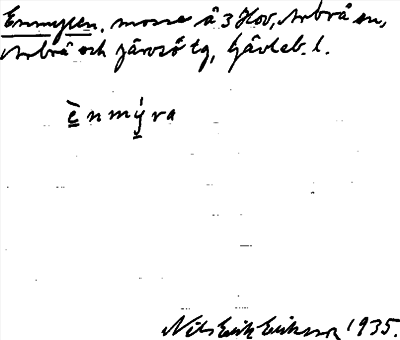 Enmyren, mosse å 3 Hov, Arbrå sn,
Arbrå och Järvsö tg, Gävleb. l.
ènmýra
Nils Erik Eriksson 1935.